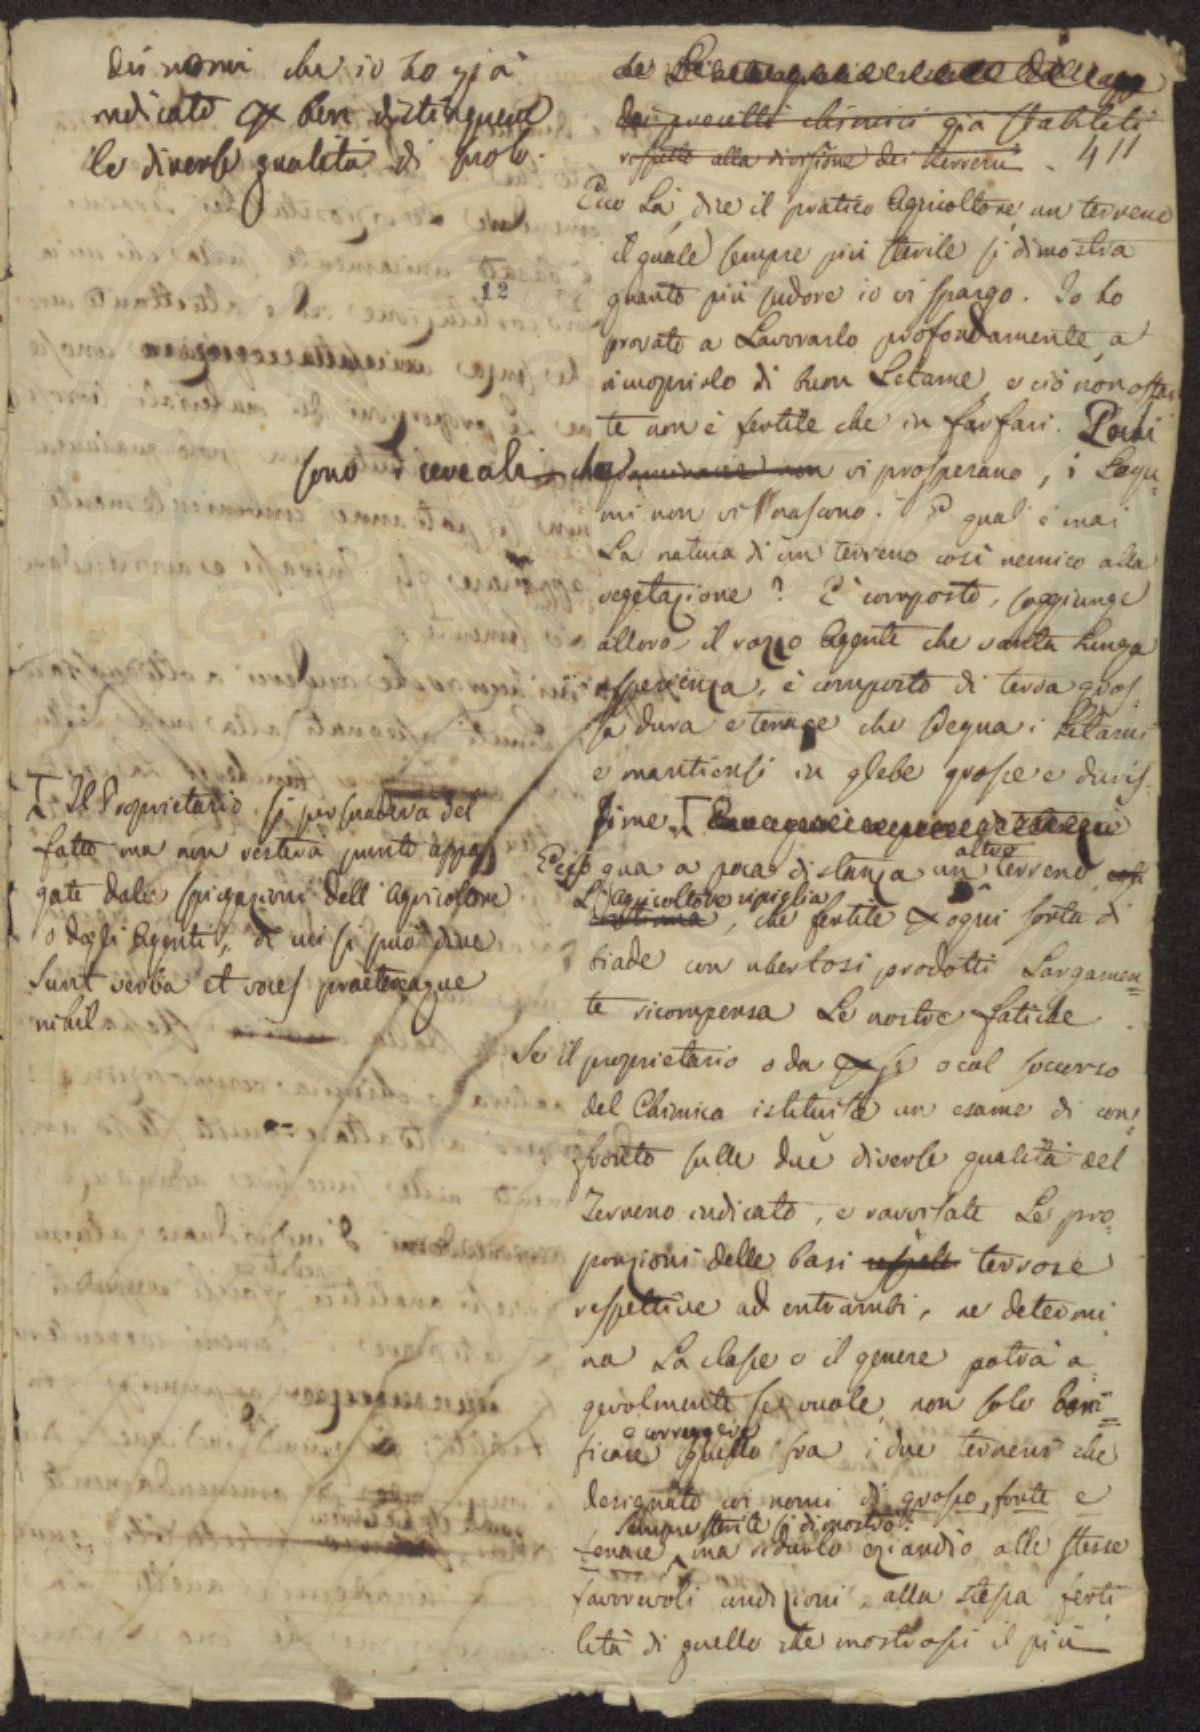 dei nomi che io ho già
ndicato p ben distinguere
le diverse qualità di
12
I Il Proprietario si persuadeva del
fatto ma non restava punto appa
gato dalle spiegazioni dell agricoltore
o degli Agenti, di cui si può dire
sunt verba et voces praetereaque
nihil
che
dei processi chimici già stabiliti
rispetto alla divisione dei terreni 411
Ecco là, dice il pratico Agricoltore, un terreno
il quale sempre più sterile si dimostra
quanto più sudore io vi spargo. Io ho
provato a Lavorarlo profondamente, a
ricuoprirlo di buon Letame, e ciò non ostan
te non è fertile che in farfari. Pochi
sono i cereali che non vi prosperano, i Legu=
mi non vi nascono. E qual è mai
La natura di un terreno così nemico alla
vegetazione? E' composto, soggiunge
allora il rozzo Agente che vanta lunga
esperienza, è composto di terra gros
sa dura e tenace che i Letami
e mantiensi in glebe grosse e duris
sime. I
Ecco qua a poca distanza un altro terreno
L'agricoltore ripiglia, che fertile p ogni sorta di
biade con ubertosi prodotti Largamen=
te ricompensa Le nostre fatiche
Se il proprietario o da p se o col soccorso
del Chimico istituisse un esame di con
fronto sulle due diverse qualità del
Terreno indicato, e ravvisate Le pro
porzioni delle basi terrose
respettive ad entrambi, ne determi
na La classe o il genere potrà a
gevolmente se vuole, non solo boni=
ficare e correggere quello fra i due terreni che
designato coi nomi di grosso, forte e
tenace sempre sterile si dimostrò, ma ridurlo eziandio alle stesse
favorevoli condizioni, alla stessa ferti
lità di quello che mostrossi il più